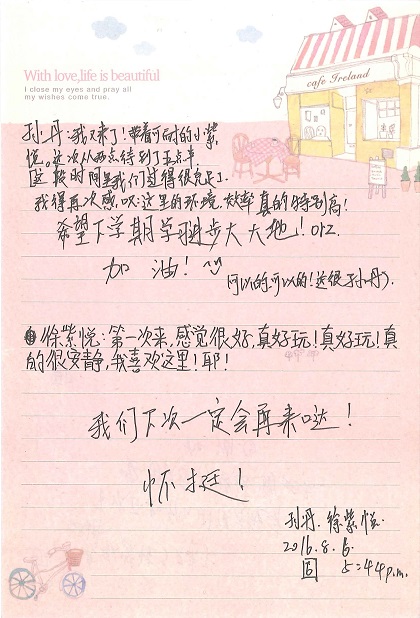 With love,life is beautiful
I close my eyes and pray all
my wishes come true.
cafe Ireland
孙丹:我又来了!带着可耐的小紫
悦。这次从两点待到了五点半
这段时间里我们过得很充实。
我得再次感叹:这里的环境、效率真的特别高!
希望下学期学习进步大大地!orz.
加油!
可以的可以的!这很孙丹)
徐紫悦:第一次来,感觉很好,真好玩!真好玩!真
的很安静,我喜欢这里!耶!
我们下次一定会再来哒!
怀挺!
孙丹.徐紫悦.
2016.8.6.
5:44p.m.